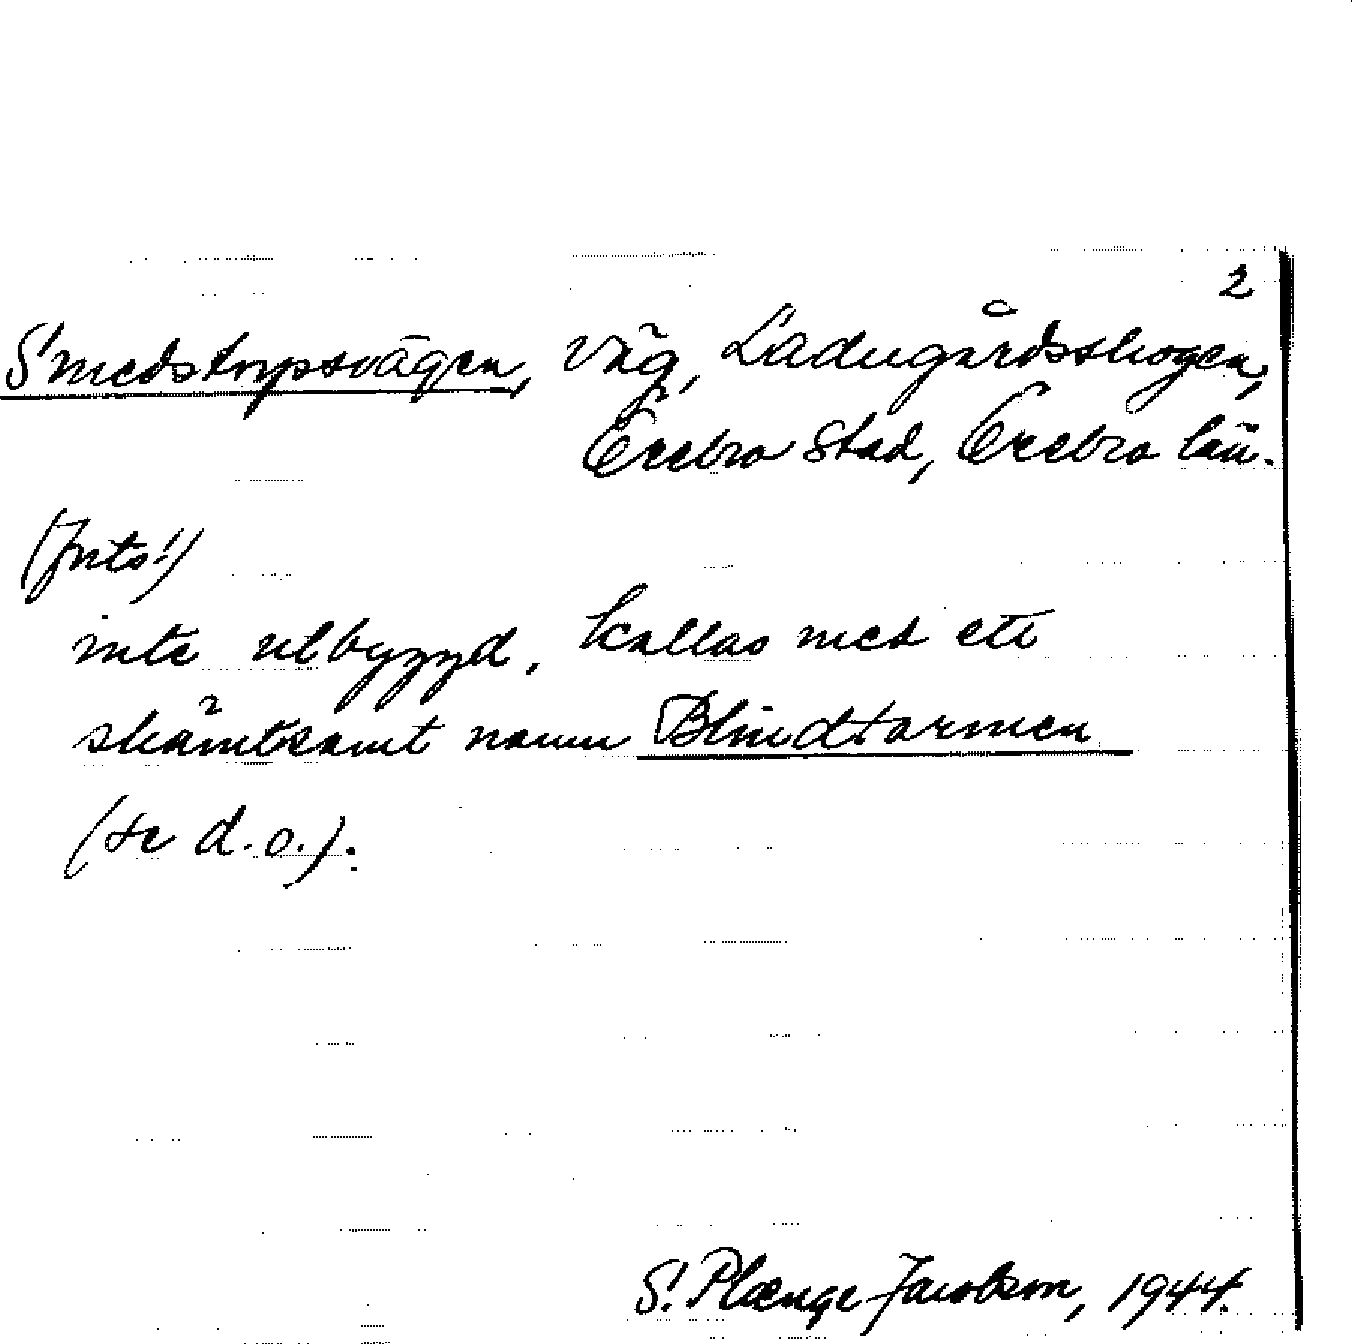 2
Smedstorpsvägen, väg, Ladugårdsskogen,
Örebro stad, Örebro län.
(forts!)
inte utbyggd, kallas med ett
skämtsamt namn Blindtarmen
(se d.o.).
S. Plænge Jacobson, 1944.